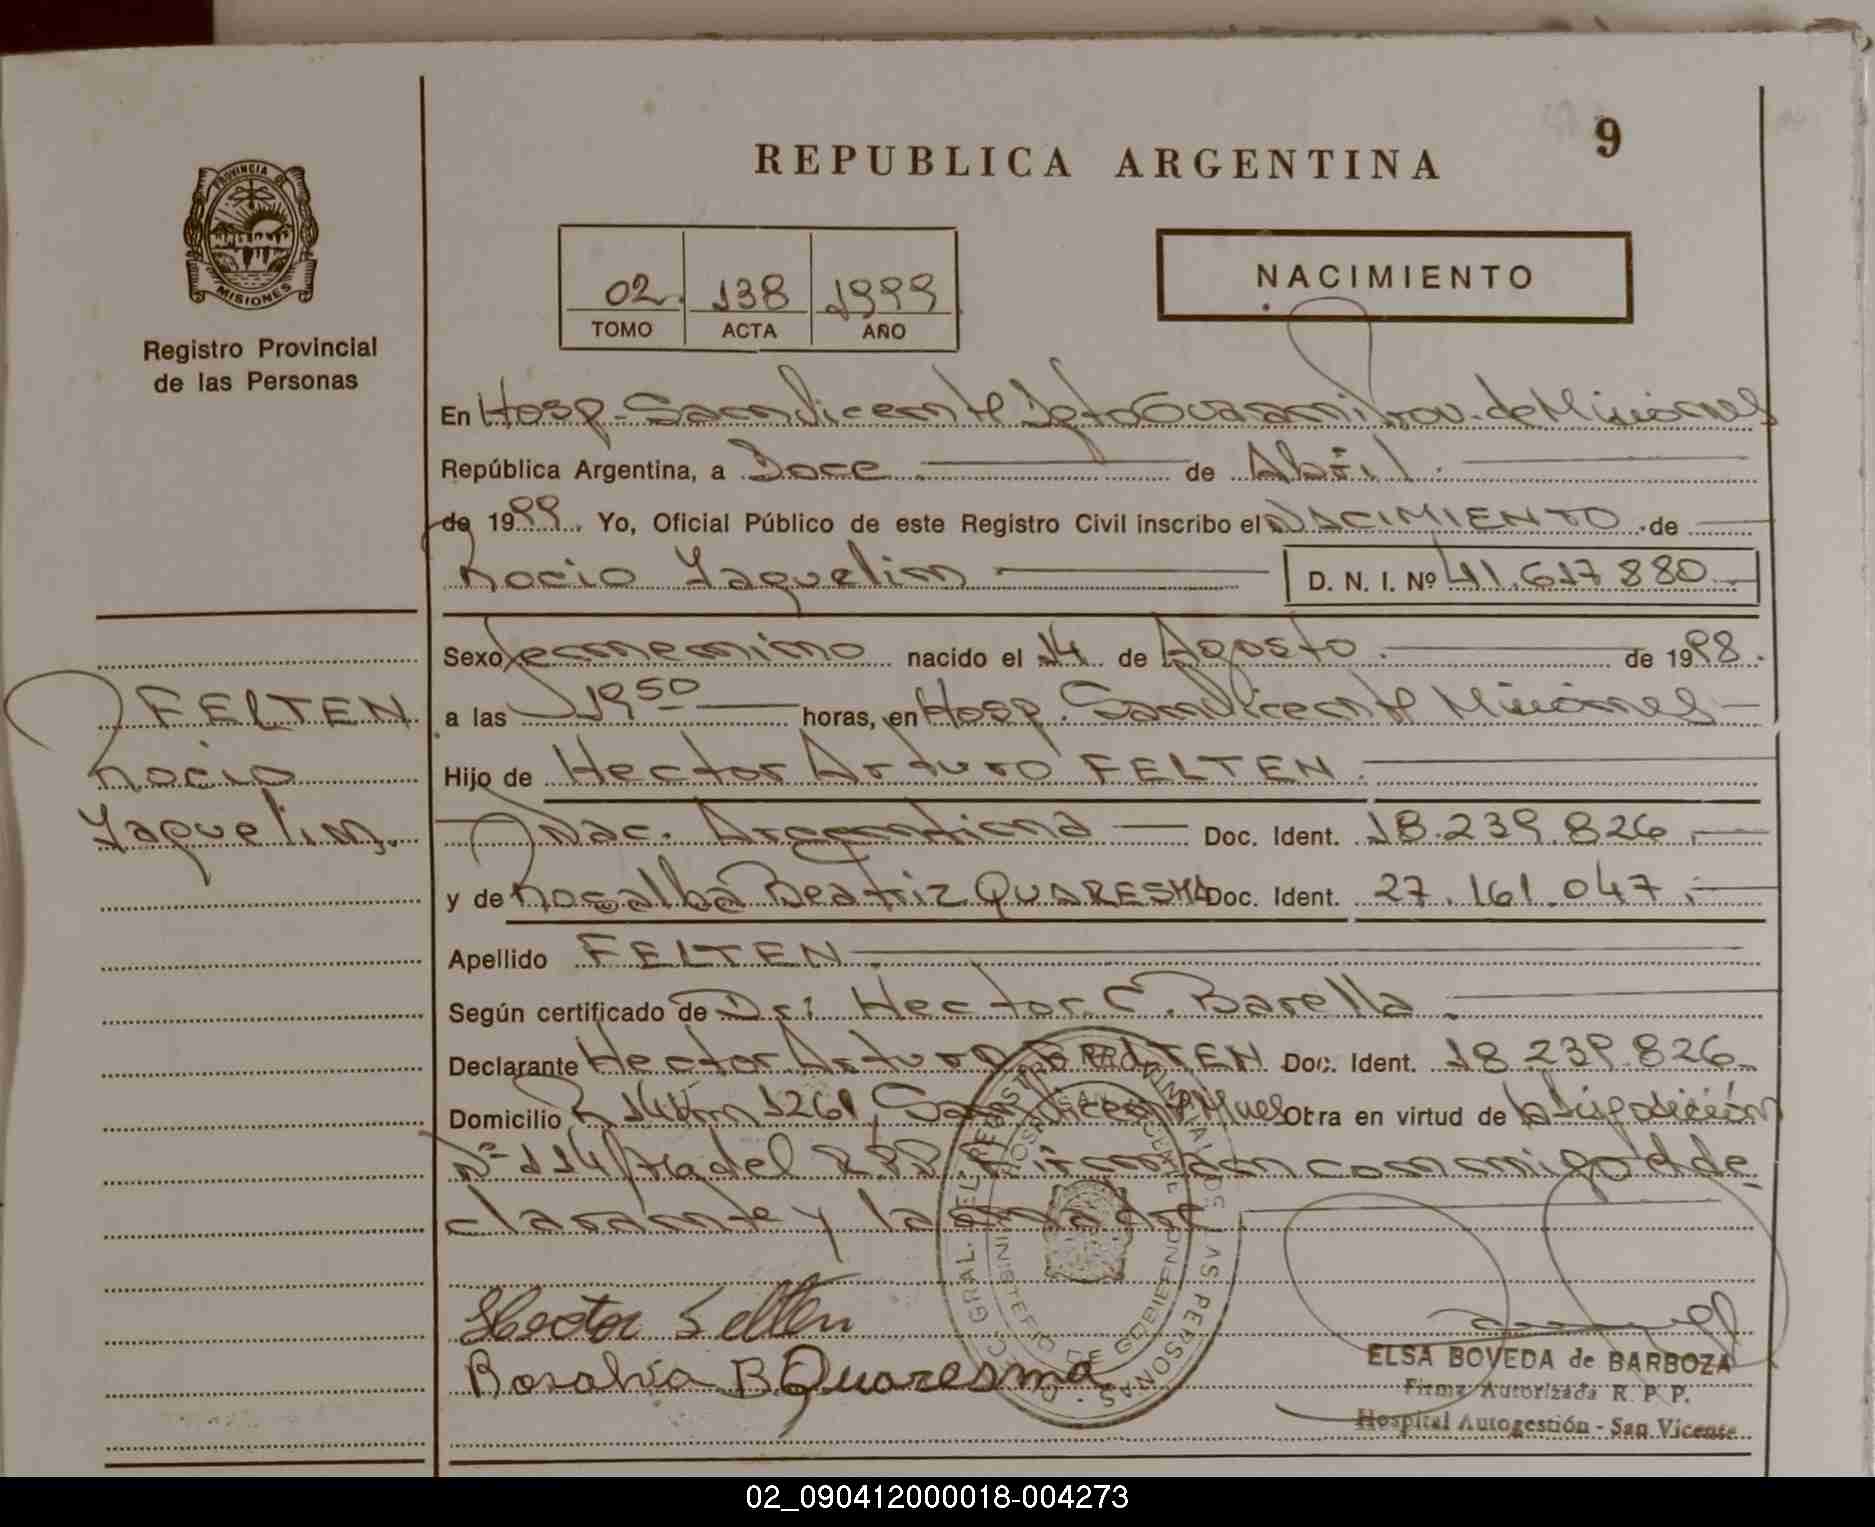 REPUBLICA ARGENTINA
9
PROVINCIA DE
MISIONES
Registro Provincial
de las Personas
02 138 1999
TOMO ACTA AÑO
NACIMIENTO
En Hosp. San Vicente Dpto Guarani Prov. de Misiones
República Argentina, a Doce de Abril
de 1999. Yo, Oficial Público de este Registro Civil inscribo el NACIMIENTO de
Rocio Yaquelin D. N. I. Nº 41.617.880
Sexo femenino nacido el 14 de Agosto de 1998.
a las 1950 horas, en Hosp. San Vicente Misiones
Hijo de Hector Arturo FELTEN
Nac. Argentina Doc. Ident. 18.239.826
y de Rosalba Beatriz QUARESMA Doc. Ident. 27.161.047
Apellido FELTEN
Según certificado de Dr: Hector C. Barella
Declarante Hector Arturo FELTEN Doc. Ident. 18.239.826
Domicilio R 14 km 1261, San Vicente Mnes Otra en virtud de la disposición
Nº 114 del R.P.P. Firman con migo el de
clarante y la
FELTEN
Rocio
Yaquelin.
Hector Felten
B Quaresma
DIRECC. GRAL. DEL REGISTRO PROVINCIAL DE LAS PERSONAS
MINISTERIO DE GOBIERNO
ELSA BOVEDA de BARBOZA
Firma Autorizada R. P. P.
Hospital Autogestión - San Vicente
02_090412000018-004273